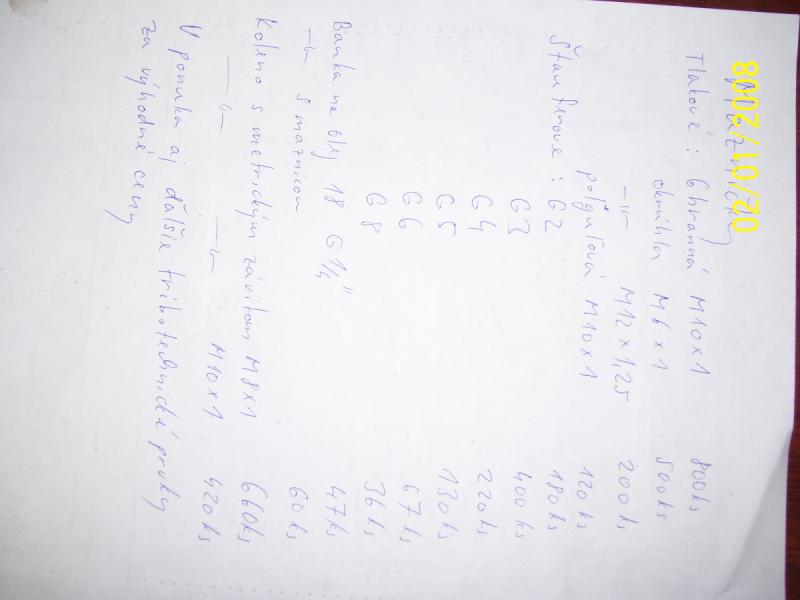 02/01/2008
Tlakové : 6 hranná M10x1 800ks
okrúhla M6x1 500ks
-"- M12x1,25 200ks
polguľová M10x1 120ks
Štauferove : G2 180ks
G3 400ks
G4 220ks
G5 130ks
G6 67ks
G8 36ks
Banka na olej 18 G 1/4" 47ks
-"- s maznicou 60ks
Koleno s metrickým závitom M8x1 660ks
-"- -"- M10x1 420ks
V ponuke aj ďalšie tribotechnické prvky
za výhodné ceny